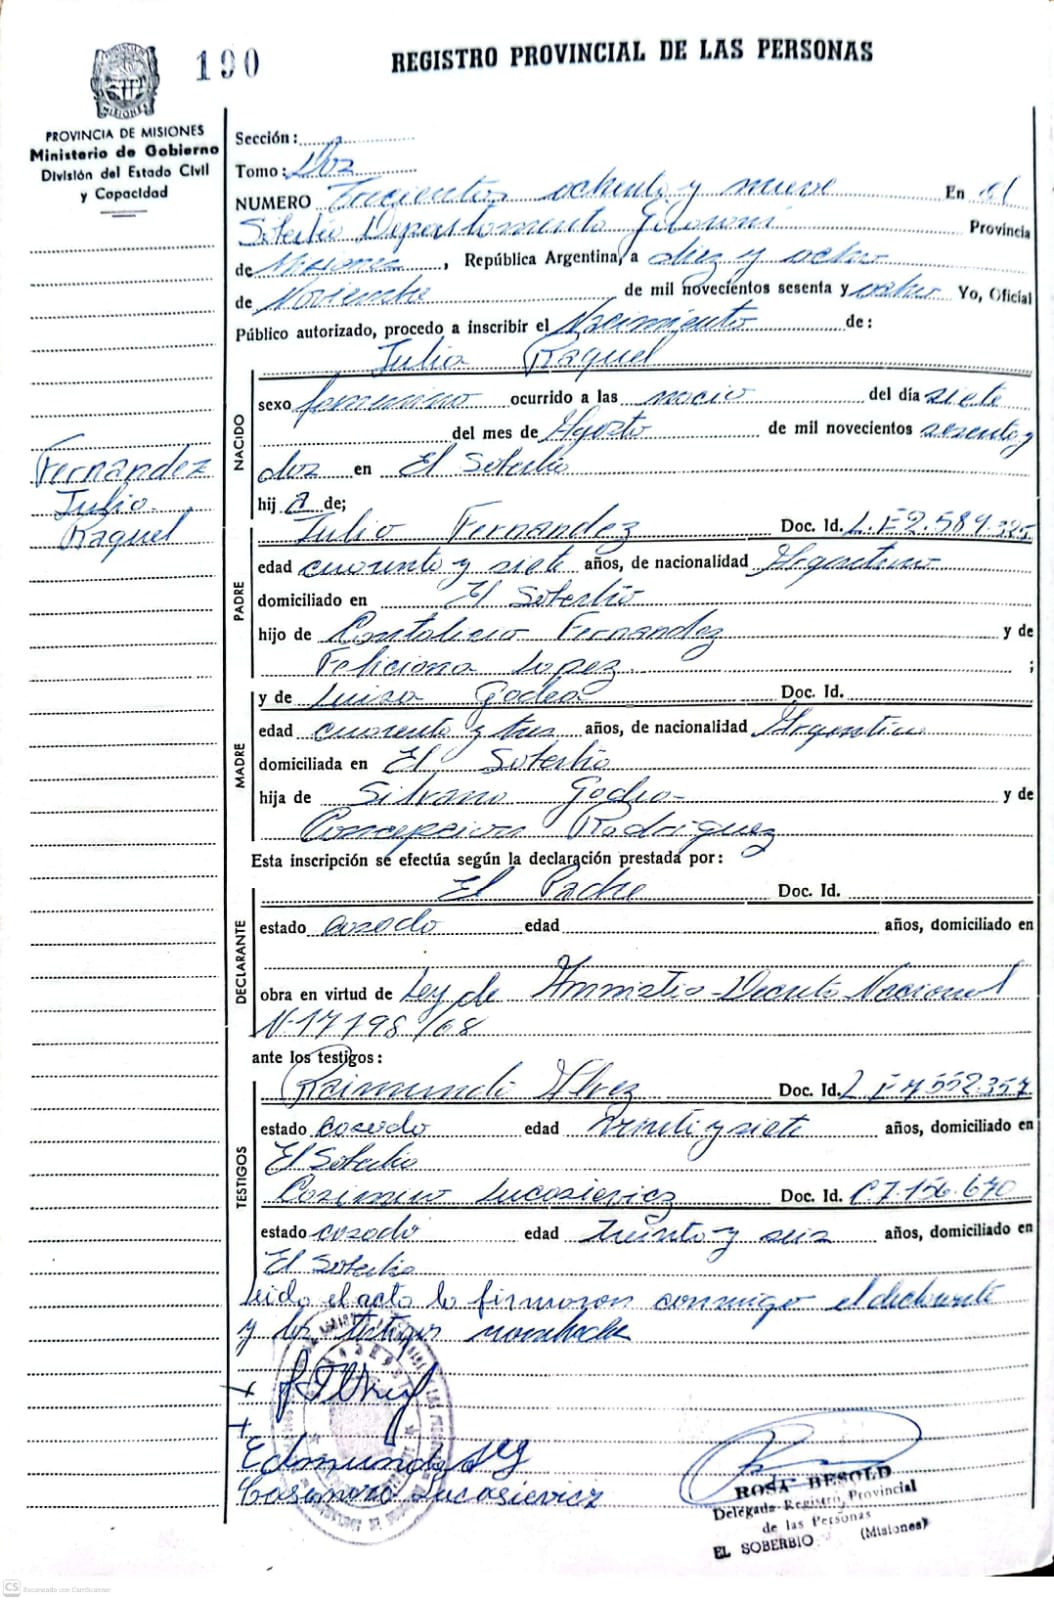 190
REGISTRO PROVINCIAL DE LAS PERSONAS
PROVINCIA DE MISIONES
Ministerio de Gobierno
División del Estado Civil
y Capacidad
Sección:
Tomo: Doz
NUMERO Trecientos ochenta y nueve En el
Soberbio Departamento Guaraní Provincia
de Misiones, República Argentina, a diez y ocho
de Noviembre de mil novecientos sesenta y ocho Yo, Oficial
Público autorizado, procedo a inscribir el Nacimiento de:
Julia Raquel
NACIDO
sexo femenino ocurrido a las del día siete
del mes de Agosto de mil novecientos sesenta y
doz en El Soberbio
Fernandez
Julia
Raquel
hij a de;
PADRE
Julio Fernandez Doc. Id. L.E 2.589.325
edad cuarenta y siete años, de nacionalidad Argentino
domiciliado en El Soberbio
hijo de Fernandez y de
Feliciana Lopez ;
MADRE
y de Luisa Godea Doc. Id.
edad cuarenta y tres años, de nacionalidad Argentina
domiciliada en El Soberbio
hija de Silvano Godea y de
Concepcion Rodriguez
Esta inscripción se efectúa según la declaración prestada por:
DECLARANTE
El Padre Doc. Id.
estado casado edad años, domiciliado en
obra en virtud de Ley de Amnistia - Decreto Nacional
N-17198/68
ante los testigos:
TESTIGOS
Raimundo Alvez Doc. Id. L E 7.552.357
estado casado edad años, domiciliado en
El Soberbio
Casimiro Lucasievicz Doc. Id. C7.156.670
estado casado edad treinta y seis años, domiciliado en
El Soberbio
Leido el acta lo firmaron conmigo el declarante
y los testigos
Edmundo
Casimoro Lucasievicz
ROSA BESOLD
Delegada Registro Provincial
de las Personas
EL SOBERBIO (Misiones)
CS Escaneado con CamScanner